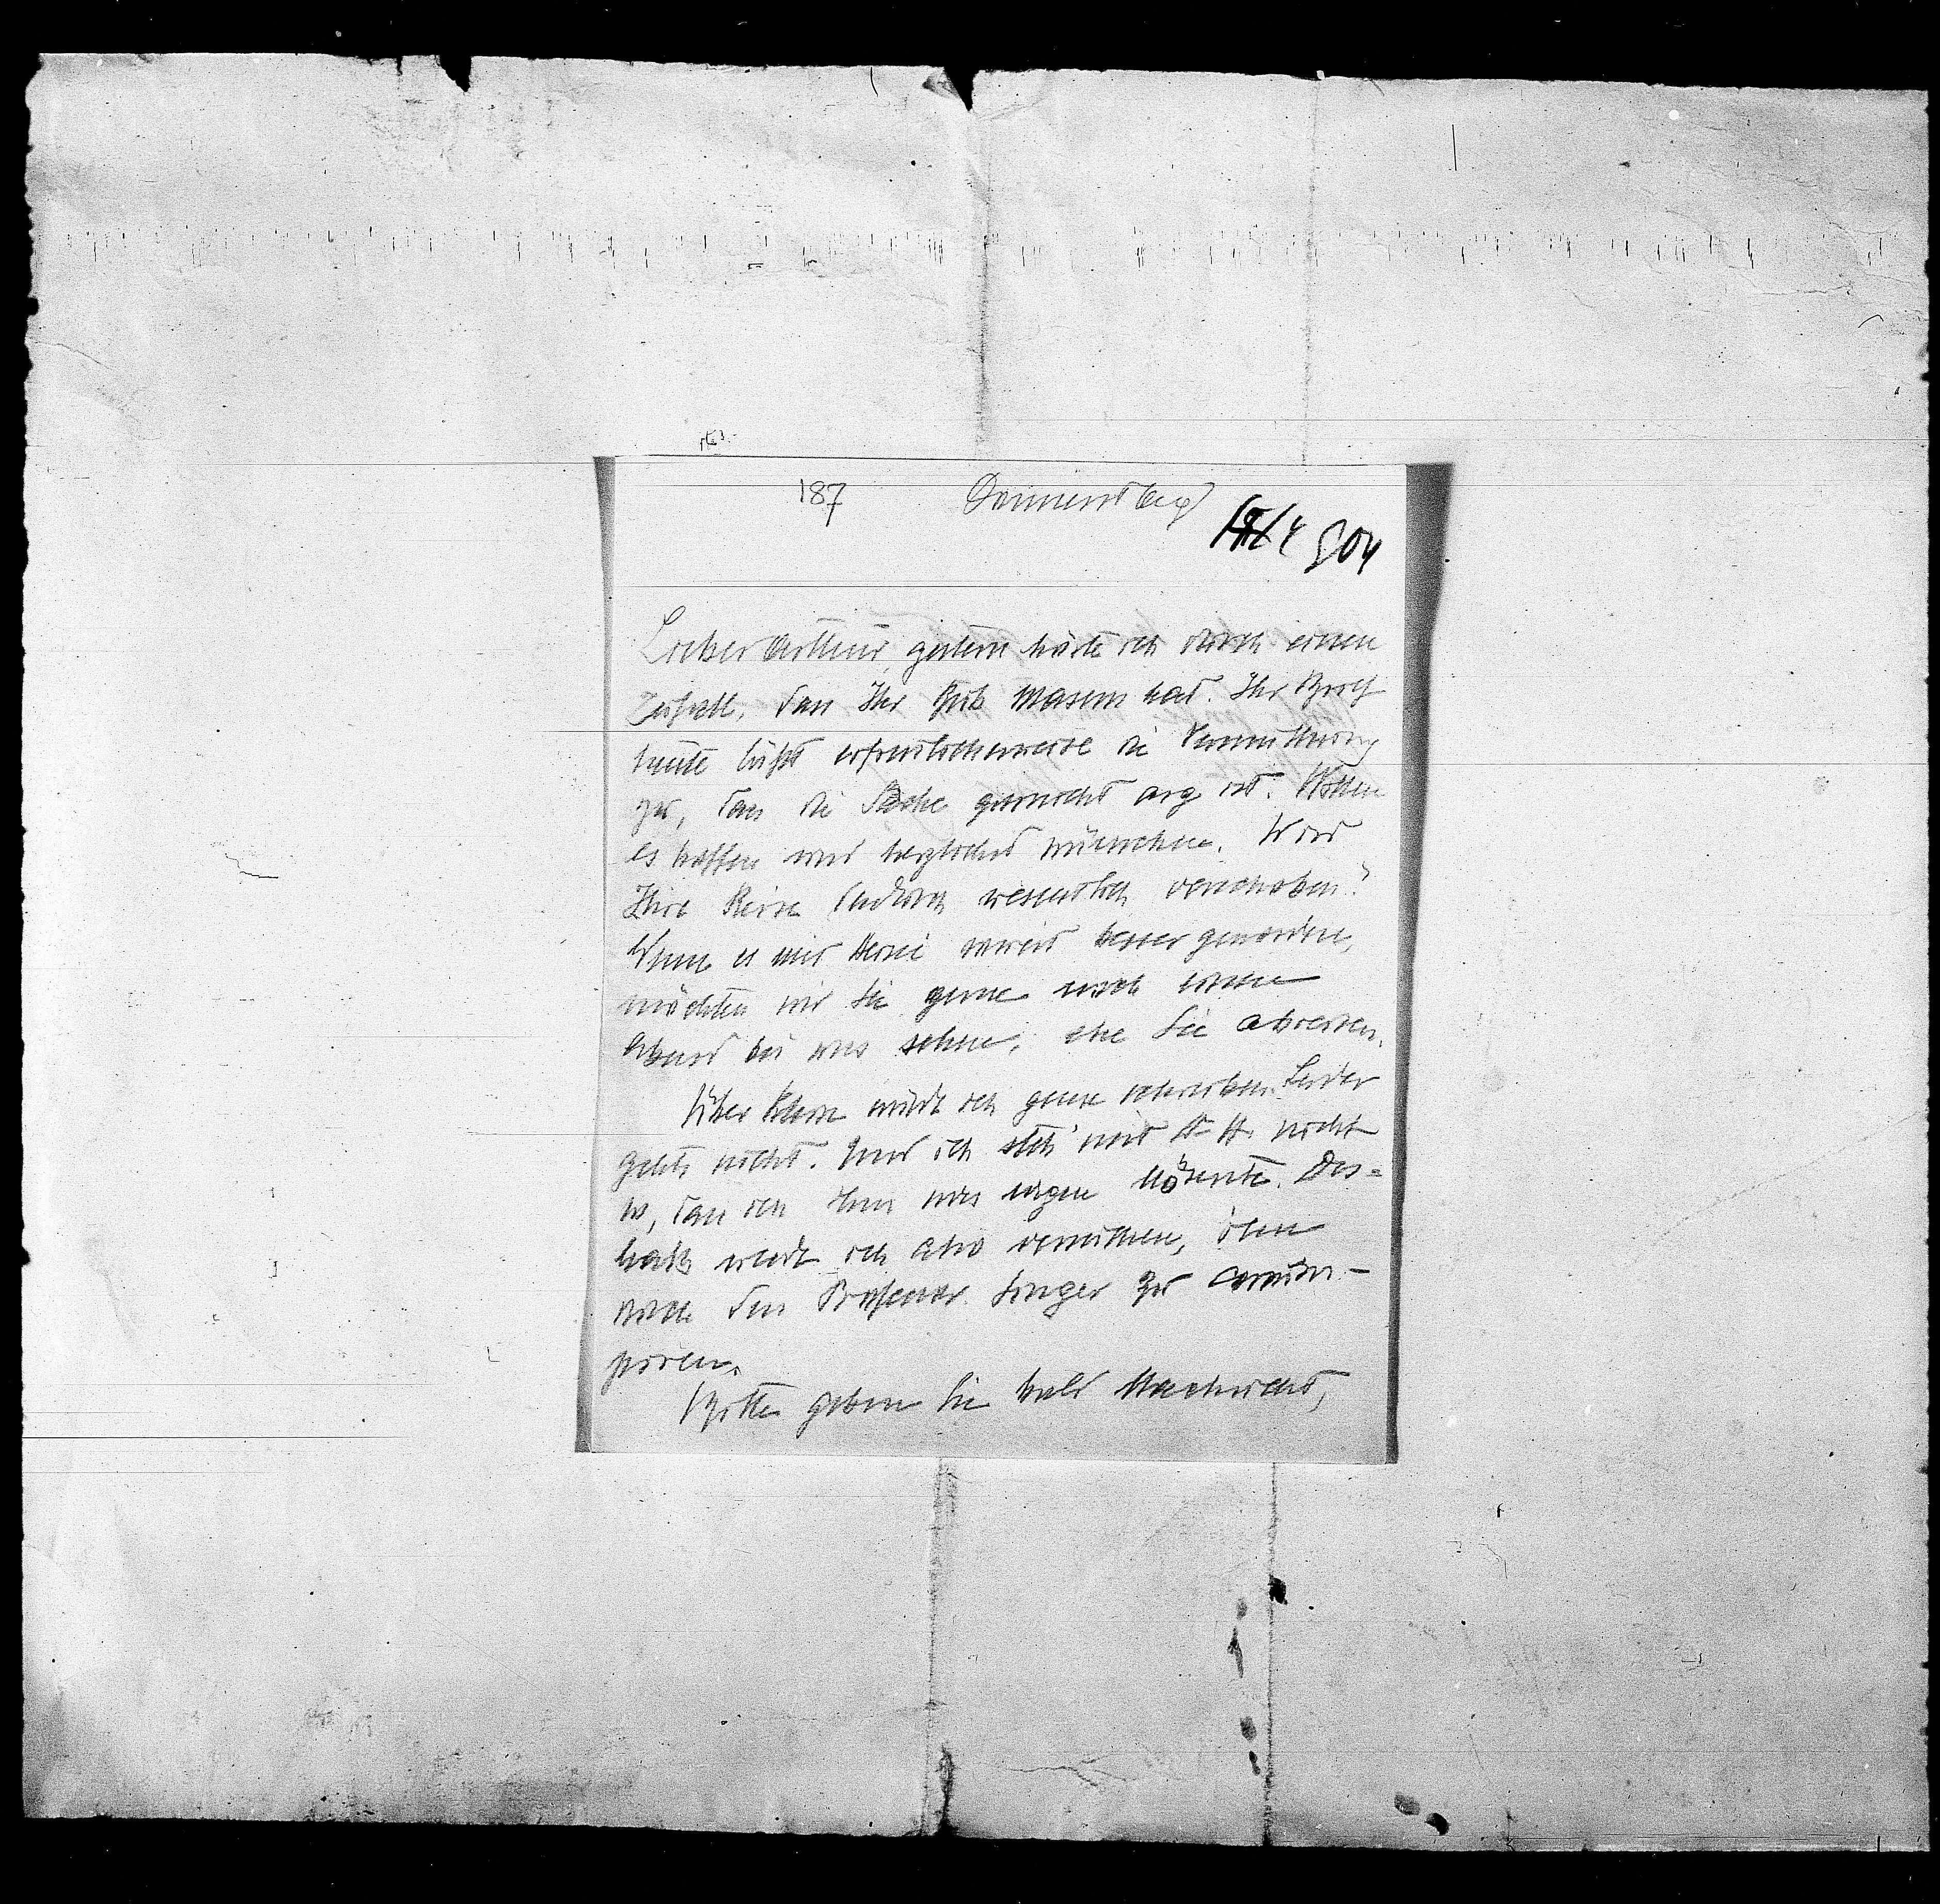 187 Donnerstag
904
Lieber Arthur, gestern hörte ich durch einen
Zufall, dass Ihr Bub Masern hat. Ihr Brief
heute läßt erfreulicherweise die Vermuthung
zu, dass die Sache gar nicht arg ist. Wollen
es hoffen und herzlichst wünschen. Wird
Ihre Reise dadurch wesentlich verschoben?
Wenn es mir soweit besser geworden,
möchten wir Sie gerne noch einen
Abend bei uns sehen, ehe Sie abreisen.
Über würde ich gerne schreiben. Leider
gehts nicht. Und ich steh' mit St-H. nicht
so, dass ich ihm was sagen könnte. Des-
halb werde ich also versuchen,
den Professor Singer zu
Bitte geben Sie bald Nachricht,